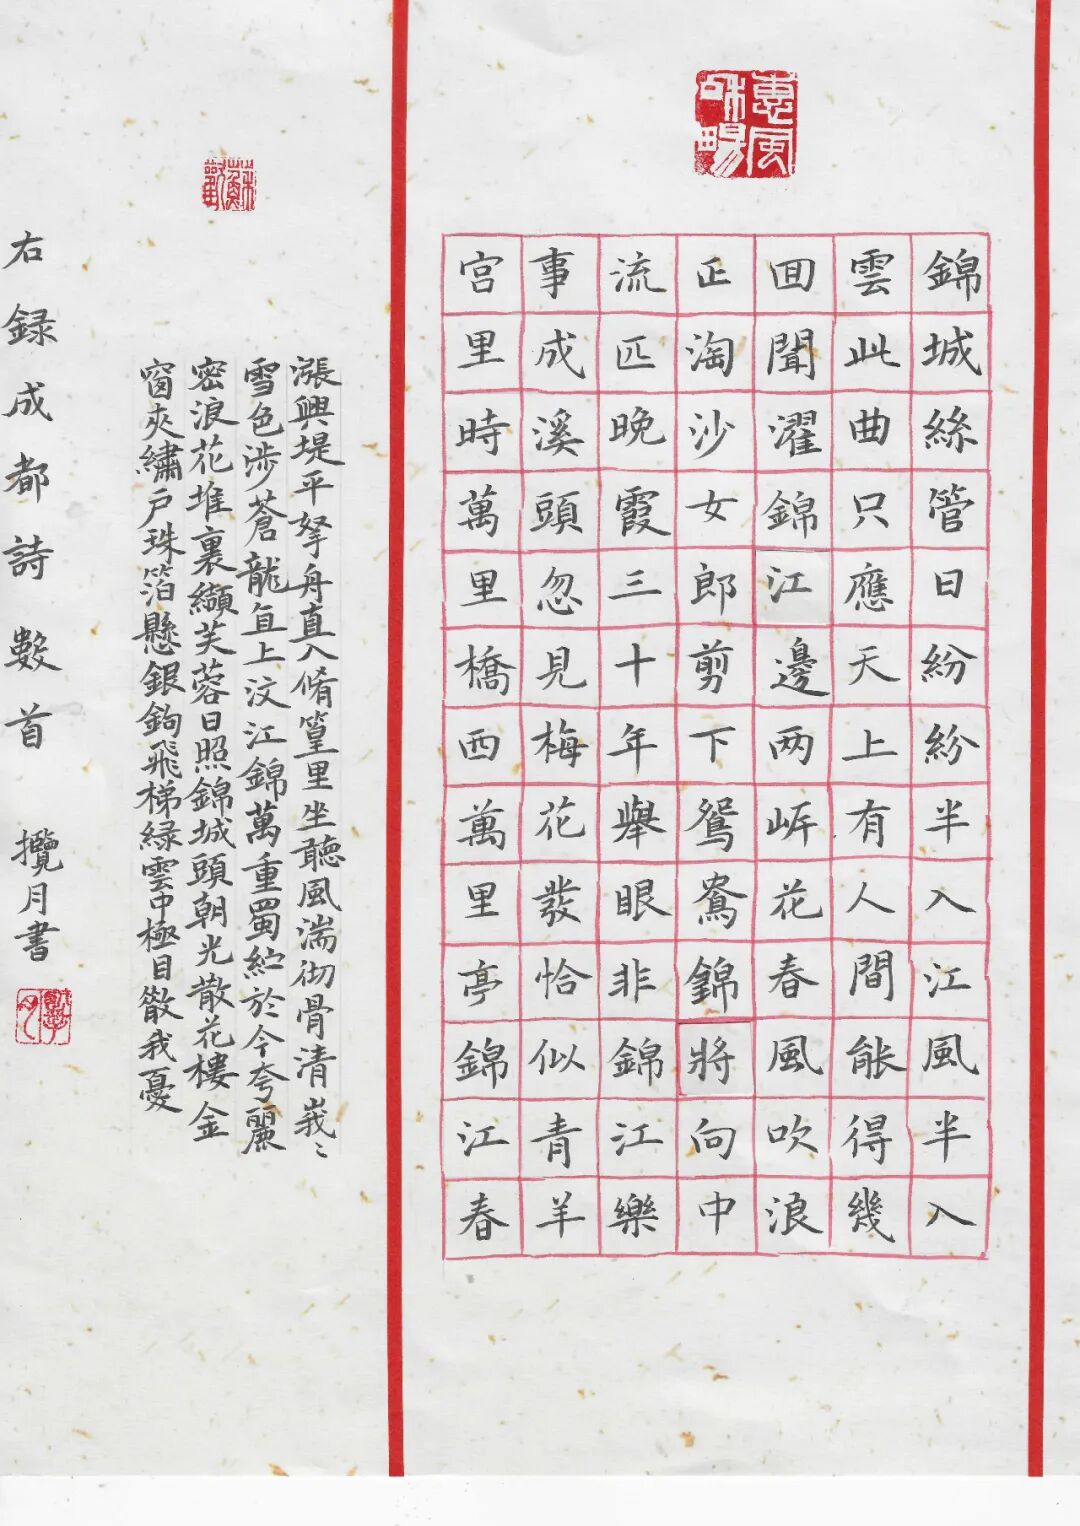 惠風
和暢
錦城絲管日紛紛半入江風半入
雲此曲只應天上有人間能得幾
囬聞濯錦江邊两岍花春風吹浪
正淘沙女郎剪下鴛鴦錦將向中
流匹晚霞三十年舉眼非錦江樂
事成溪頭忽見梅花發恰似青羊
宮里時萬里橋西萬里亭錦江春
漲興堤平拏舟直入脩篁里坐聽風湍彻骨清峩〻
雪色涉蒼龍直上汶江錦萬重蜀紵於今夸麗
密浪花堆裏纈芙蓉日照錦城頭朝光散花樓金
窗夾繡户珠箔懸銀鉤飛梯緑雲中極目散我憂
右録成都詩數首 攬月書